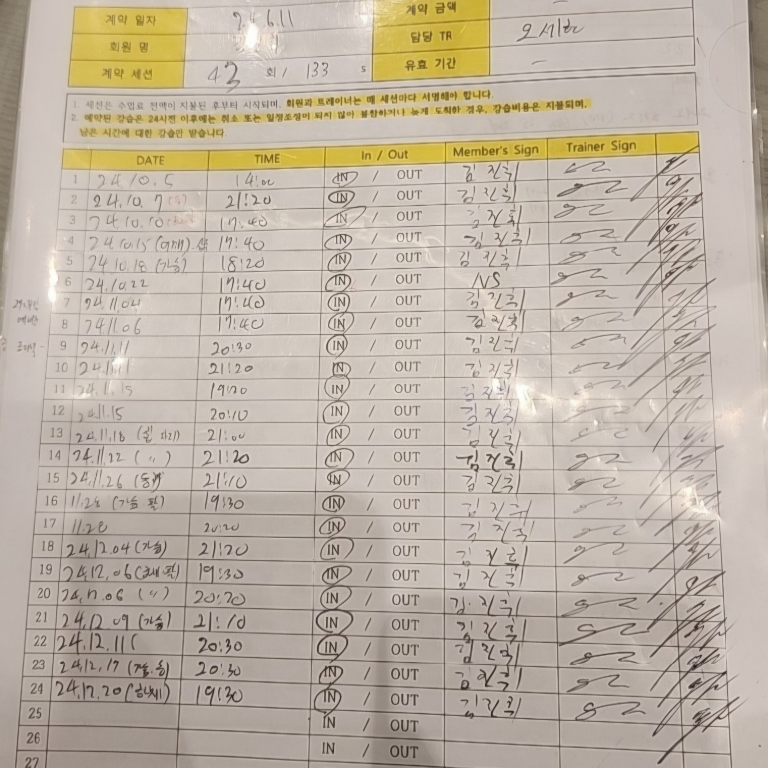 계약 일자 24.6.11 계약 금액 —
회원 명 담당 TR 오세현
계약 세션 43 회 / 133 s 유효 기간 —
1. 세션은 수업료 전액이 지불된 후부터 시작되며, 회원과 트레이너는 매 세션마다 서명해야 합니다.
2. 예약된 강습은 24시전 이후에는 취소 또는 일정조정이 되지 않아 불참하거나 늦게 도착한 경우, 강습비용은 지불되며,
남은 시간에 대한 강습만 받습니다
DATE TIME In / Out Member's Sign Trainer Sign
1 24.10.5 14:00 IN / OUT 김진희
2 24.10.7 21:20 IN / OUT 김진희
3 24.10.10 17:40 IN / OUT 김진희
4 24.10.15 (어깨) 17:40 IN / OUT 김진희
5 24.10.18 (가슴) 18:20 IN / OUT 김진희
6 24.10.22 17:40 IN / OUT NS
7 24.11.04 17:40 IN / OUT 김진희
8 24.11.06 17:40 IN / OUT 김진희
9 24.11.11 20:30 IN / OUT 김진희
10 24.11.11 21:20 IN / OUT 김진희
11 24.11.15 19:20 IN / OUT 김진희
12 24.11.15 20:10 IN / OUT 김진희
13 24.11.18 21:00 IN / OUT 김진희
14 24.11.22 ( " ) 21:20 IN / OUT 김진희
15 24.11.26 21:10 IN / OUT 김진희
16 11.28 (가슴 팔) 19:30 IN / OUT 김진희
17 11.28 20:20 IN / OUT 김진희
18 24.12.04 (가슴) 21:20 IN / OUT 김진희
19 24.12.06 19:30 IN / OUT 김진희
20 24.12.06 ( " ) 20:20 IN / OUT 김진희
21 24.12.09 (가슴) 21:10 IN / OUT 김진희
22 24.12.11 ( 20:30 IN / OUT 김진희
23 24.12.17 20:30 IN / OUT 김진희
24 24.12.20 (하체) 19:30 IN / OUT 김진희
25 IN / OUT
26 IN / OUT
27